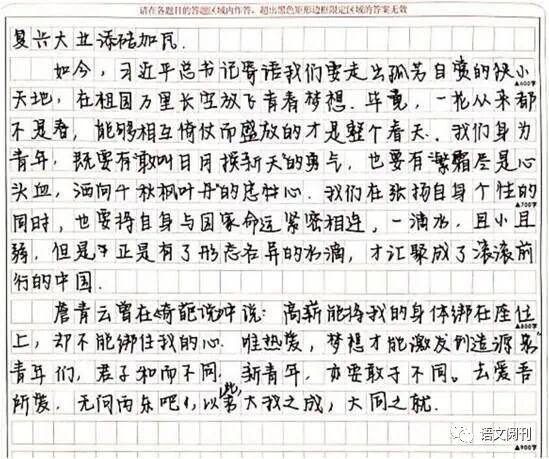 请在各题目的答题区域内作答，超出黑色矩形边框限定区域的答案无效
复兴大业添砖加瓦.
如今，习近平总书记寄语我们要走出孤芳自赏的狭小
▲600字
天地，在祖国万里长空放飞青春梦想. 毕竟，一花从来都
不是春，能够相互倚仗而盛放的才是整个春天. 我们身为
青年，既要有"敢叫日月换新天"的勇气，也要有"繁霜尽是心
头血，洒向千秋枫叶丹"的忠忱心. 我们在张扬自身个性的
▲700字
同时，也要将自身与国家命运紧密相连，一滴水，且小且
弱，但是正是有了形态各异的水滴，才汇聚成了滚滚前
行的中国.
詹青云曾在《奇葩说》中说：高薪能将我的身体绑在座位
▲800字
上，却不能绑住我的心. 唯热爱，梦想才能激发创造源泉
青年们，君子和而不同，新青年，亦要敢于不同。去爱吾
所爱，无问西东吧！以此大我之成，大同之就.
▲900字
语文阅刊